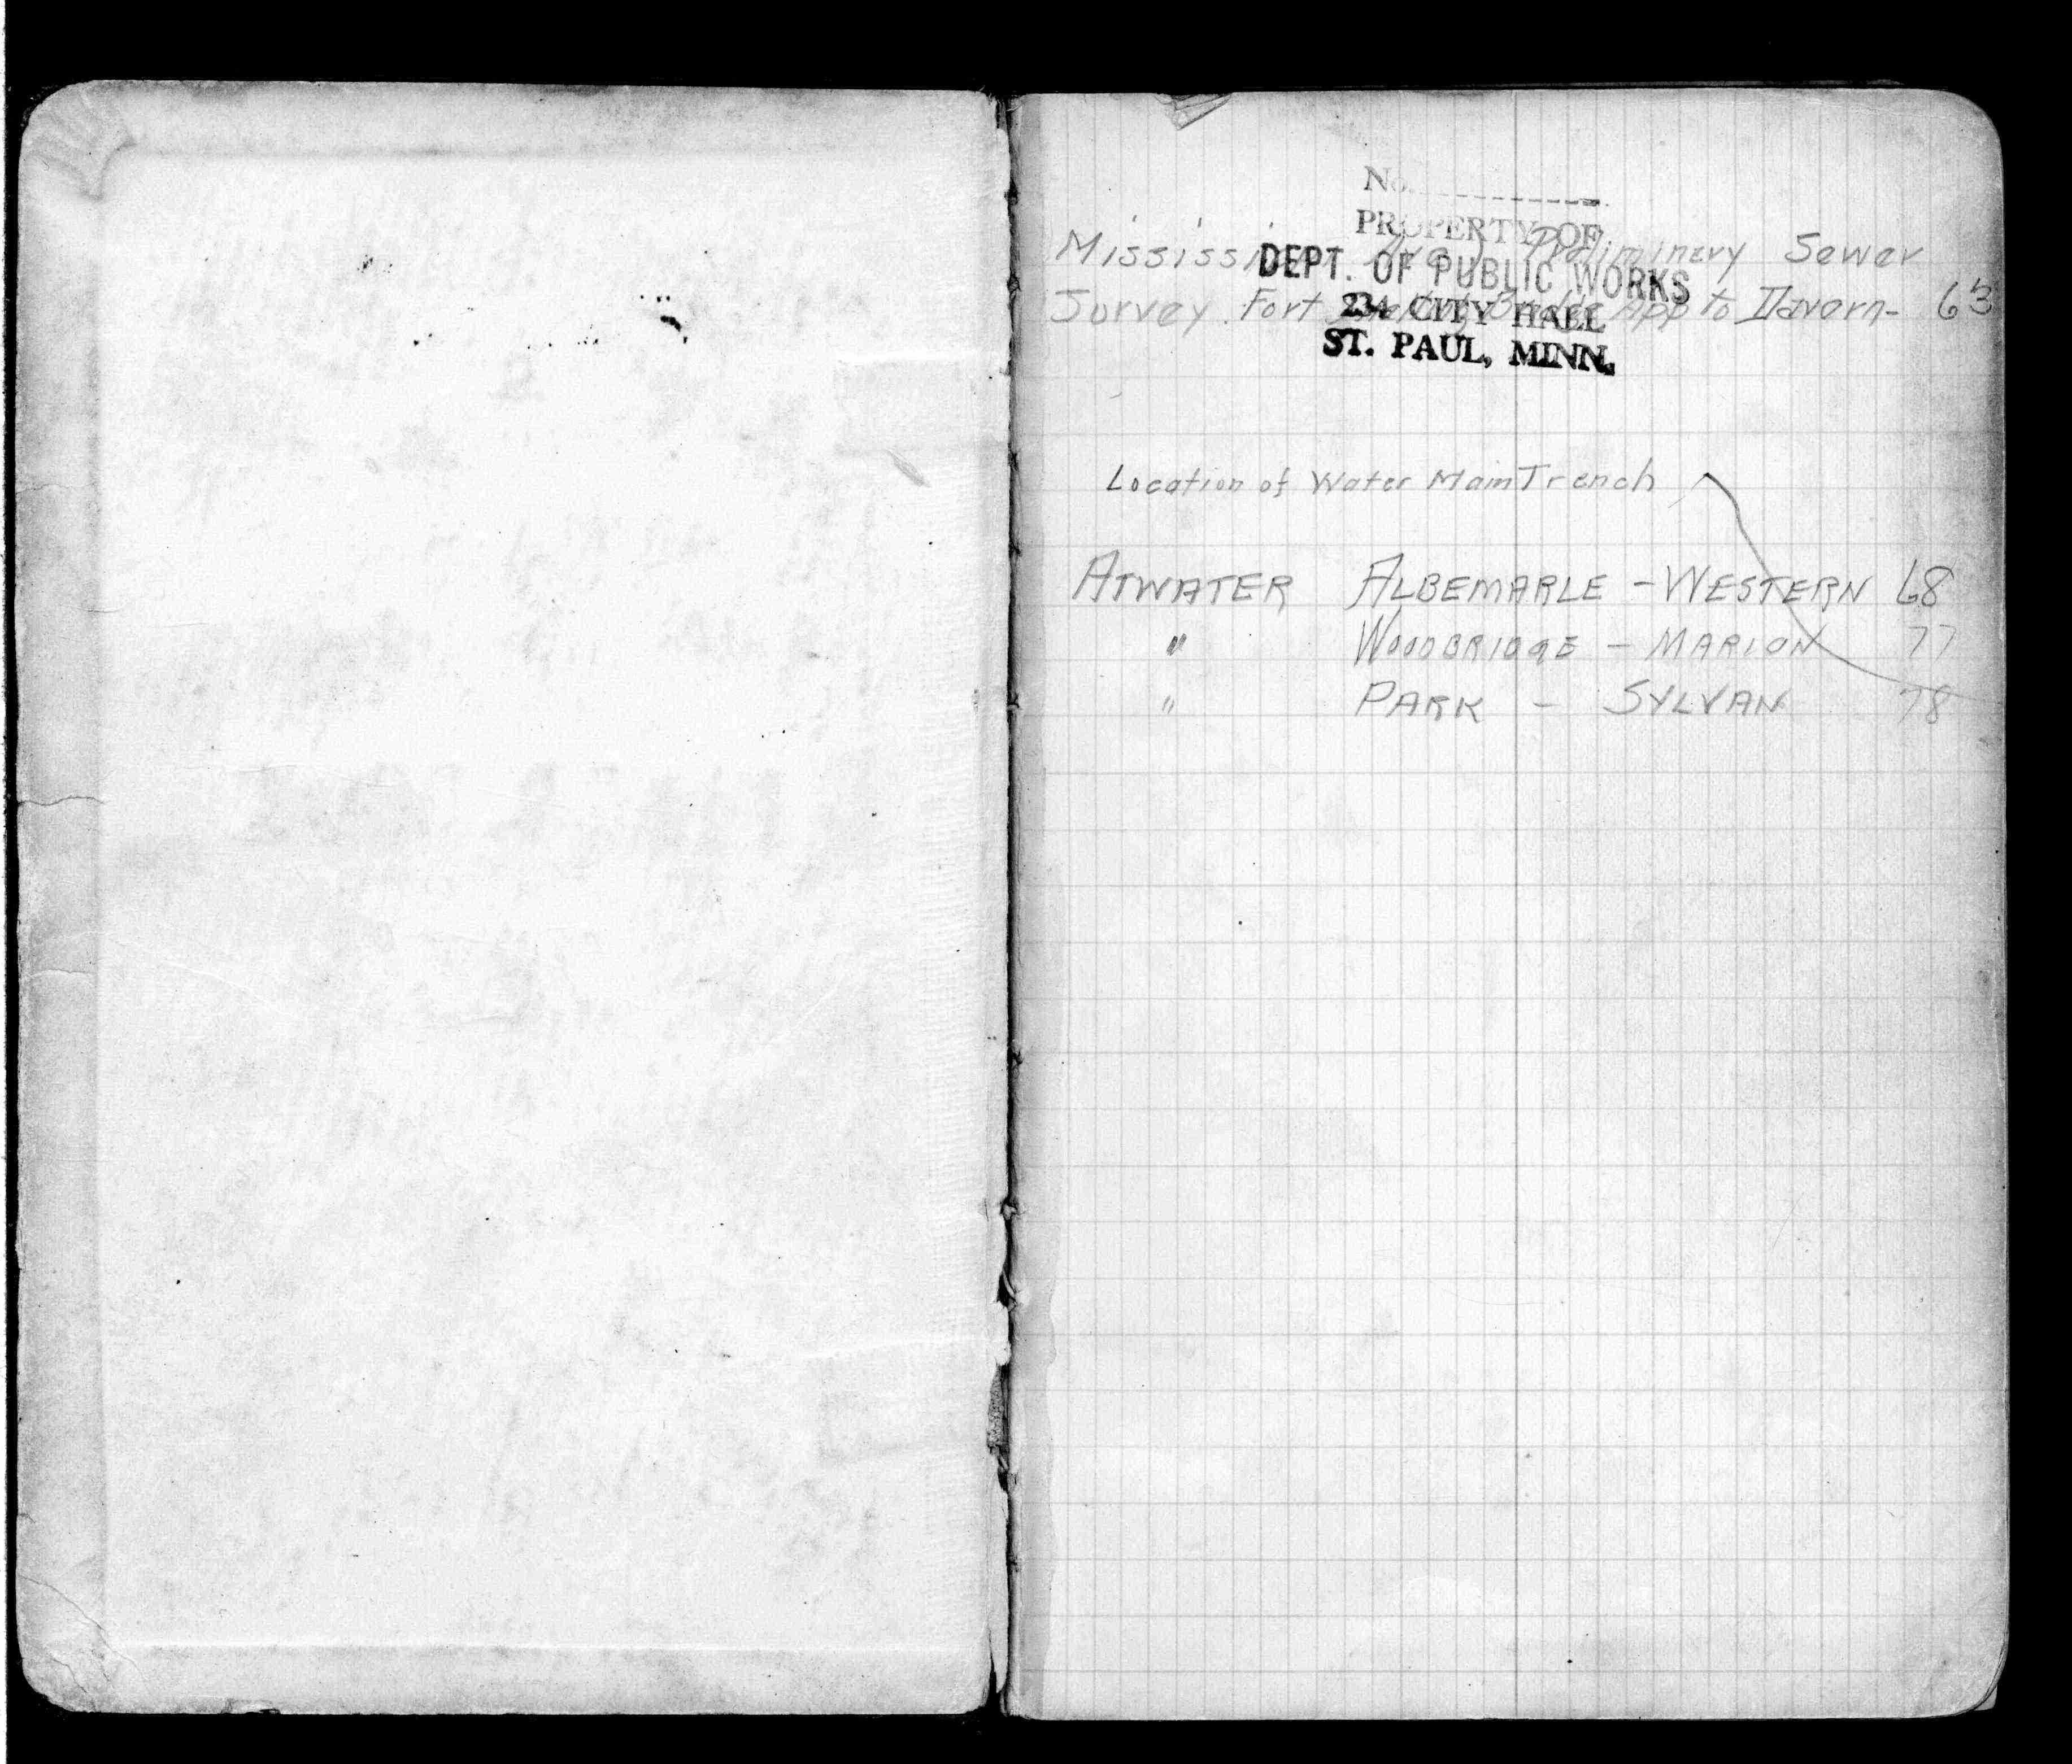 No.
PROPERTY OF
DEPT. OF PUBLIC WORKS
234 CITY HALL
ST. PAUL, MINN.
Mississippi Preliminary Sewer
Survey Fort Snelling Bridge App to Davern- 63
Location of Water Main Trench
ATWATER ALBEMARLE - WESTERN 68
" WOODBRIDGE - MARION 77
" PARK - SYLVAN 78